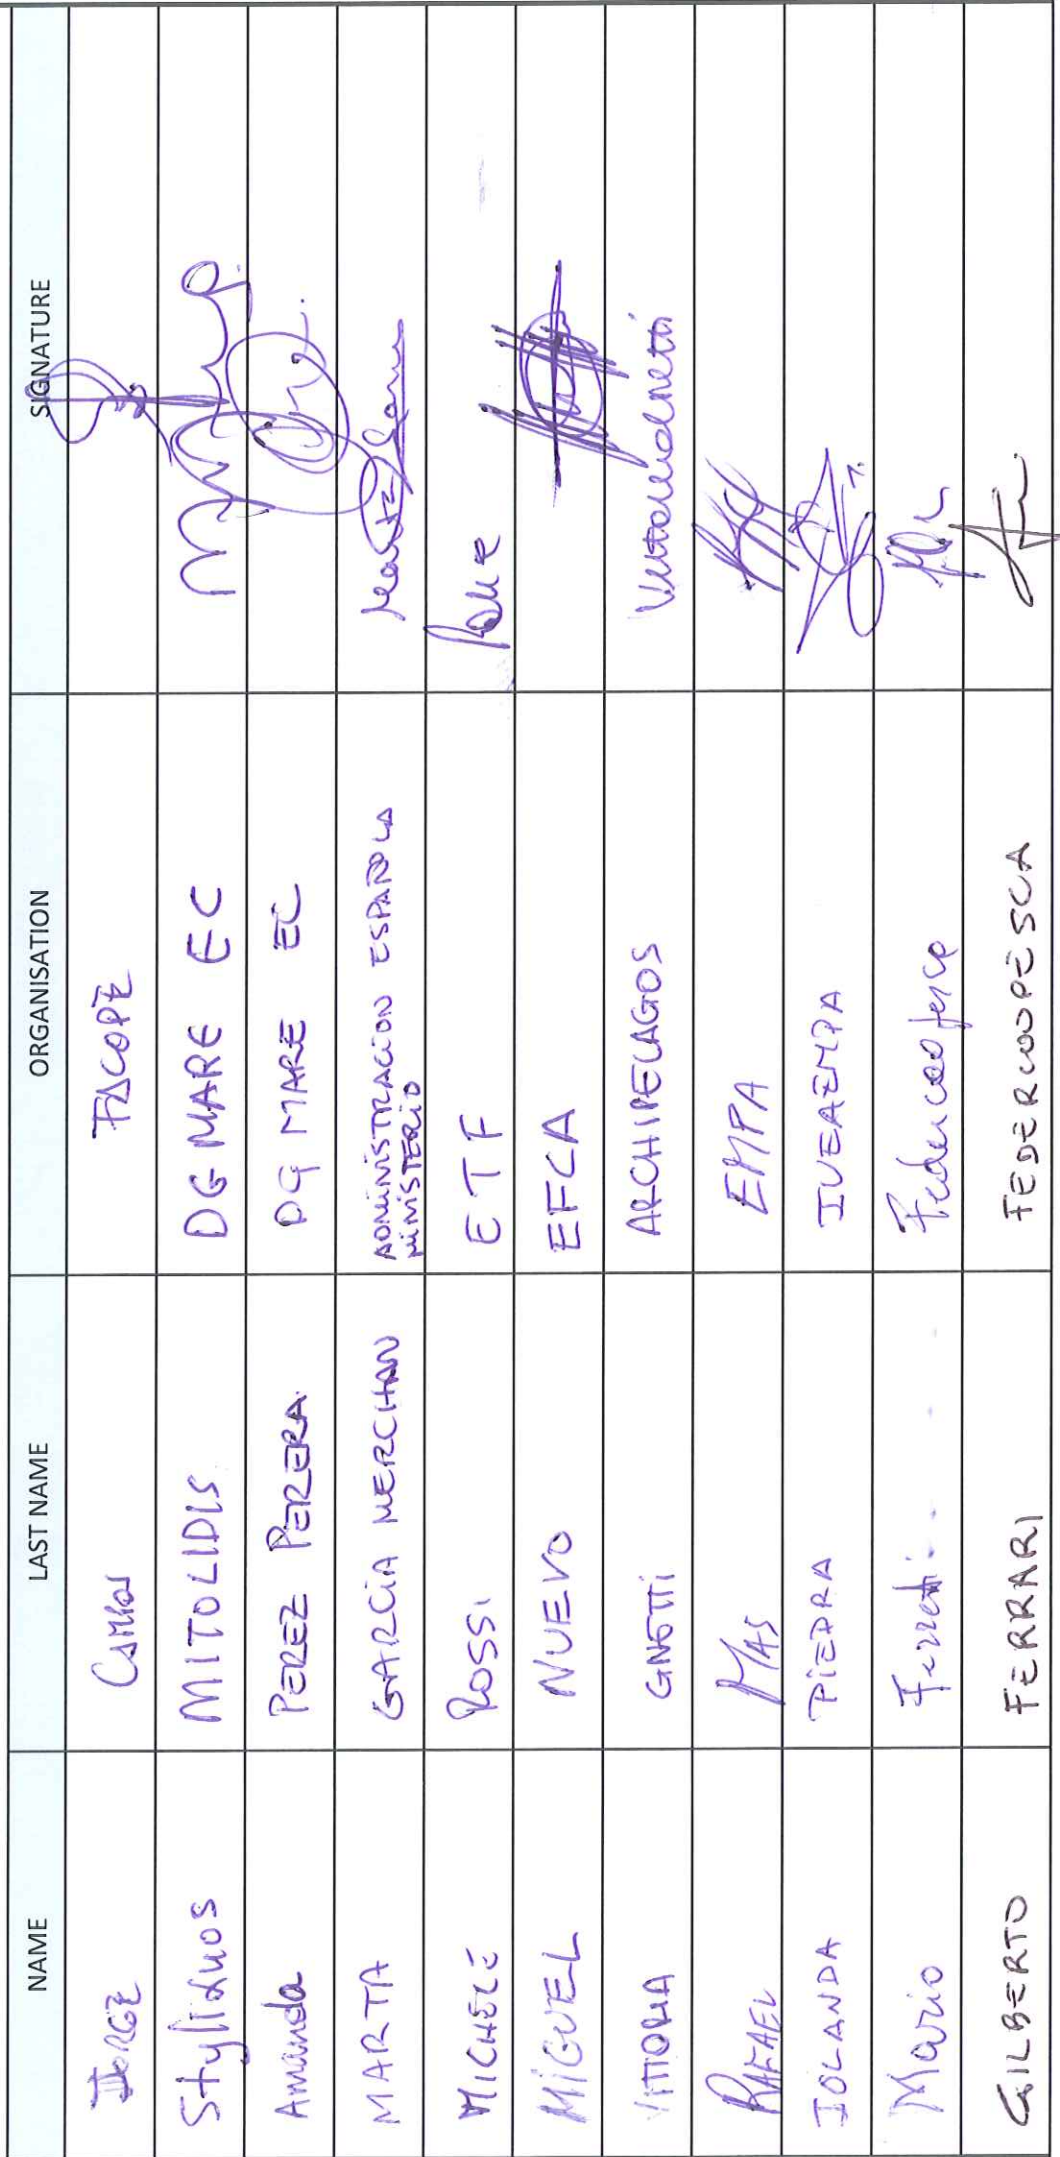 NAME LAST NAME ORGANISATION SIGNATURE
JORGE Campos FACOPE
Stylianos MITOLIDIS DG MARE EC
Amanda PEREZ PERERA DG MARE EC
MARTA GARCIA MERCHAN ADMINISTRACION ESPAÑOLA
MINISTERIO
MICHELE ROSSI ETF
MIGUEL NUEVO EFCA
VITTORIA GNETTI ARCHIPELAGOS
RAFAEL MAS EMPA
IOLANDA PIEDRA IVEAEMPA
Mario Ferretti Federcoopesca
GILBERTO FERRARI FEDERCOOPESCA